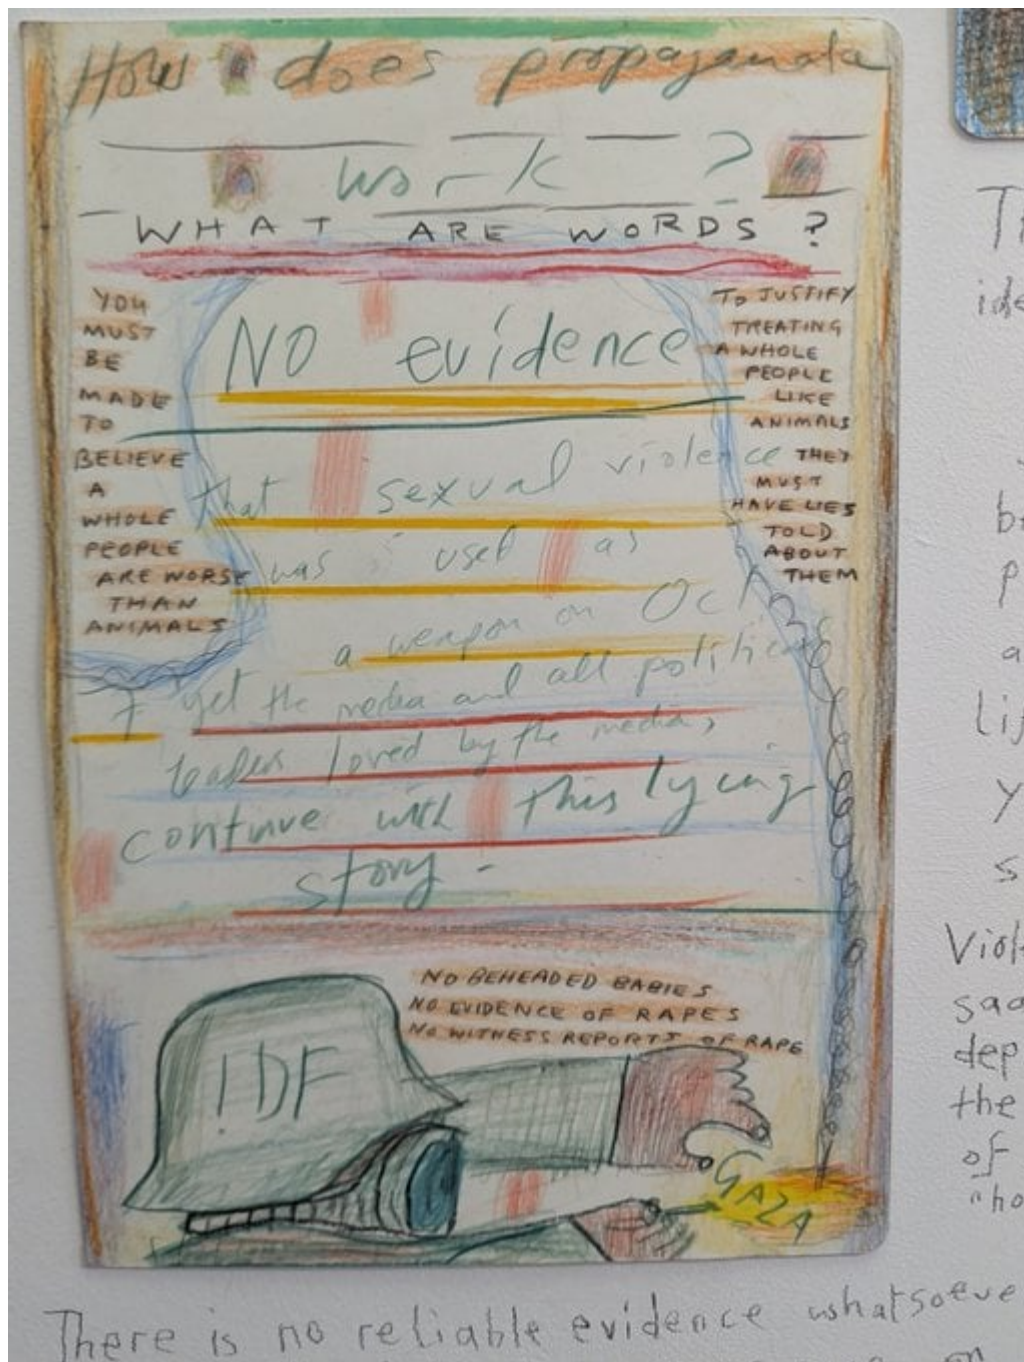 How does propaganda
work ?
WHAT ARE WORDS ?
YOU
MUST
BE
MADE
TO
BELIEVE
A
WHOLE
PEOPLE
ARE WORSE
THAN
ANIMALS
NO evidence
that sexual violence
was used as
a weapon on Oct
7 yet the media and all political
leaders loved by the media,
continue with this lying
story -
TO JUSTIFY
TREATING
A WHOLE
PEOPLE
LIKE
ANIMALS
THEY
MUST
HAVE LIES
TOLD
ABOUT
THEM
NO BEHEADED BABIES
NO EVIDENCE OF RAPES
NO WITNESS REPORTS OF RAPE
IDF
GAZA
There is no reliable evidence whatsoeve
on
ide
p
a
y
s
Viol
sad
dep
the
of
"ho